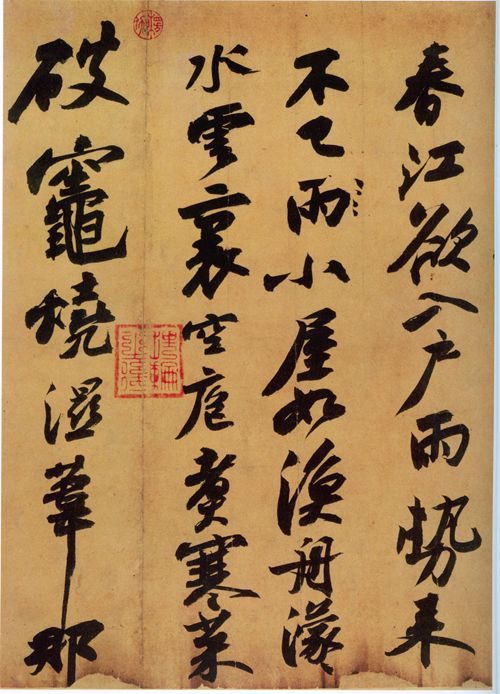 春江欲入戶雨勢来
不已雨小屋如漁舟濛々
水雲裏空庖煮寒菜
破竈燒濕葦那